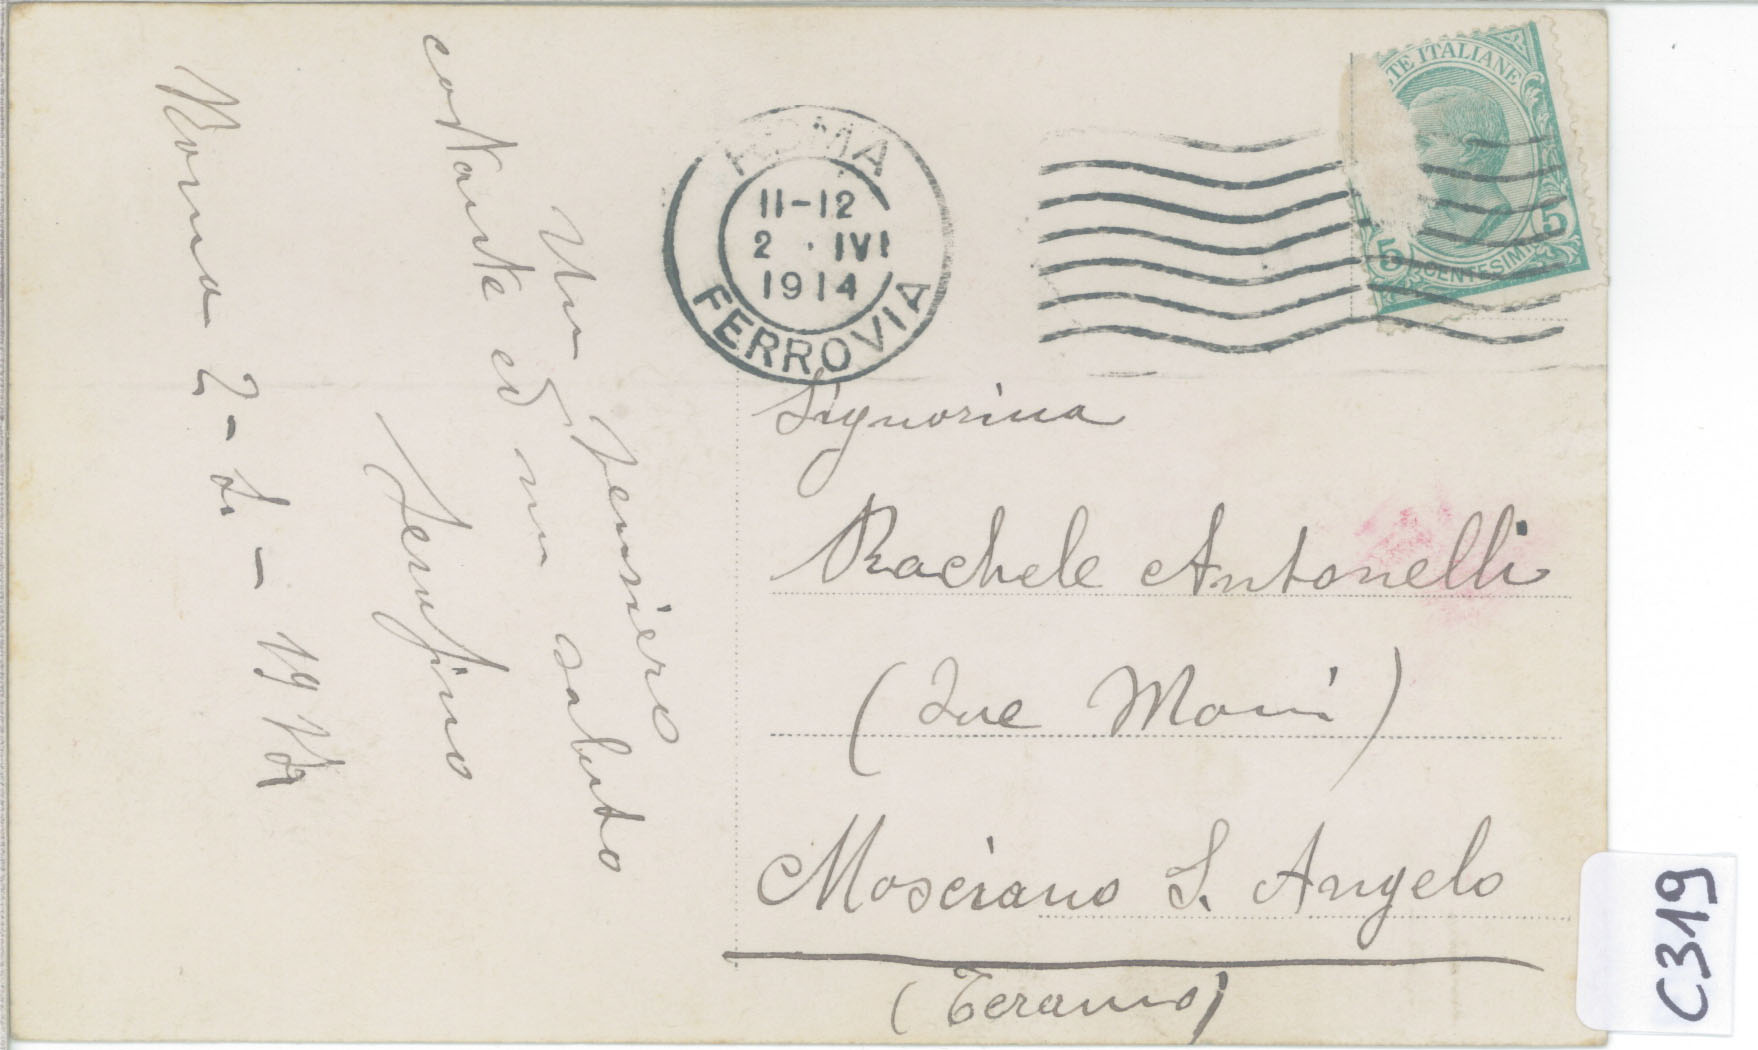 Un pensiero
costante ed un saluto
Serafino
Roma 2-
ROMA
11-12
2 · IVI
1914
FERROVIA
TE ITALIANE
5 CENTESIMI 5
Signorina
Rachele Antonelli
(Due Mani)
Mosciano S. Angelo
(Teramo)
C319